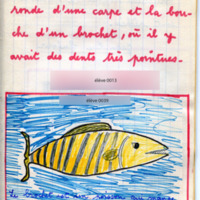 ronde d'une carpe et la bou-
che d'un brochet, où il y
avait des dents très pointues-
élève 0013
élève 0039
Le brochet est un poisson qui mange